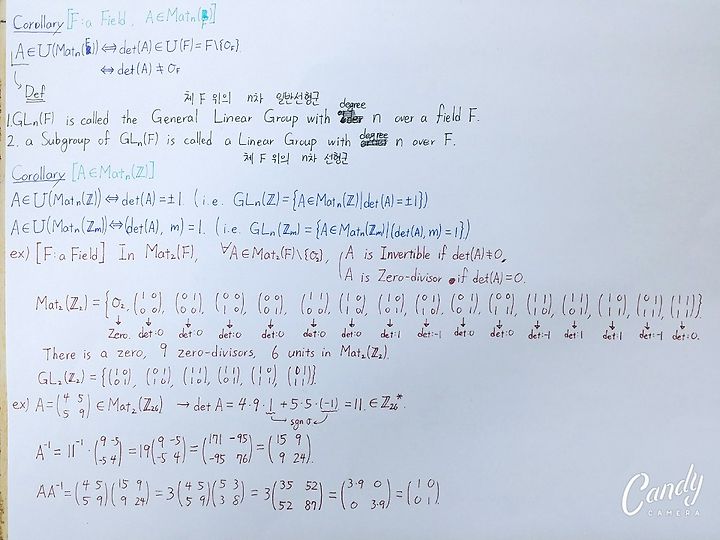 Corollary [F: a Field, A∈Matₙ(F)]
A∈U(Matₙ(F)) ⇔ det(A)∈U(F)=F\{0_F}.
⇔ det(A)≠0_F
Def
체 F 위의 n차 일반선형군
1. GLₙ(F) is called the General Linear Group with degree n over a field F.
2. a Subgroup of GLₙ(F) is called a Linear Group with degree n over F.
체 F 위의 n차 선형군
Corollary [A∈Matₙ(ℤ)]
A∈U(Matₙ(ℤ)) ⇔ det(A)=±1. (i.e. GLₙ(ℤ)={A∈Matₙ(ℤ)|det(A)=±1})
A∈U(Matₙ(ℤₘ)) ⇔ (det(A), m)=1. (i.e. GLₙ(ℤₘ)={A∈Matₙ(ℤₘ)|(det(A), m)=1})
ex) [F: a Field] In Mat₂(F), ∀A∈Mat₂(F)\{O₂}, A is Invertible if det(A)≠0,
A is Zero-divisor if det(A)=0.
Mat₂(ℤ₂)={O₂,
Zero. det:0 det:0 det:0 det:0 det:0 det:0 det:1 det:-1 det:0 det:0 det:-1 det:1 det:1 det:-1 det:0.
There is a zero, 9 zero-divisors, 6 units in Mat₂(ℤ₂).
GL₂(ℤ₂)={
ex) A=(4 5 / 5 9)∈Mat₂(ℤ₂₆) → det A=4·9·1+5·5·(-1)=11.∈ℤ₂₆*.
sgn σ
A⁻¹=11⁻¹·(9 -5 / -5 4)=19(9 -5 / -5 4)=(171 -95 / -95 76)=(15 9 / 9 24).
AA⁻¹=(4 5 / 5 9)(15 9 / 9 24)=3(4 5 / 5 9)(5 3 / 3 8)=3(35 52 / 52 87)=(3·9 0 / 0 3·9)=(1 0 / 0 1).
Candy
CAMERA